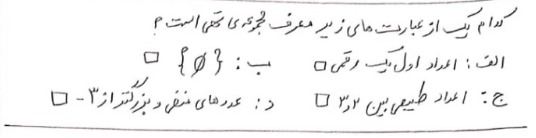 کدام یک از عبارت های زیر معرف مجموعه ی تهی است ؟
الف : اعداد اول یک رقمی □ ب : {∅} □
ج : اعداد طبیعی بین ۲و۳ □ د : عددهای منفی و بزرگتر از ۳- □